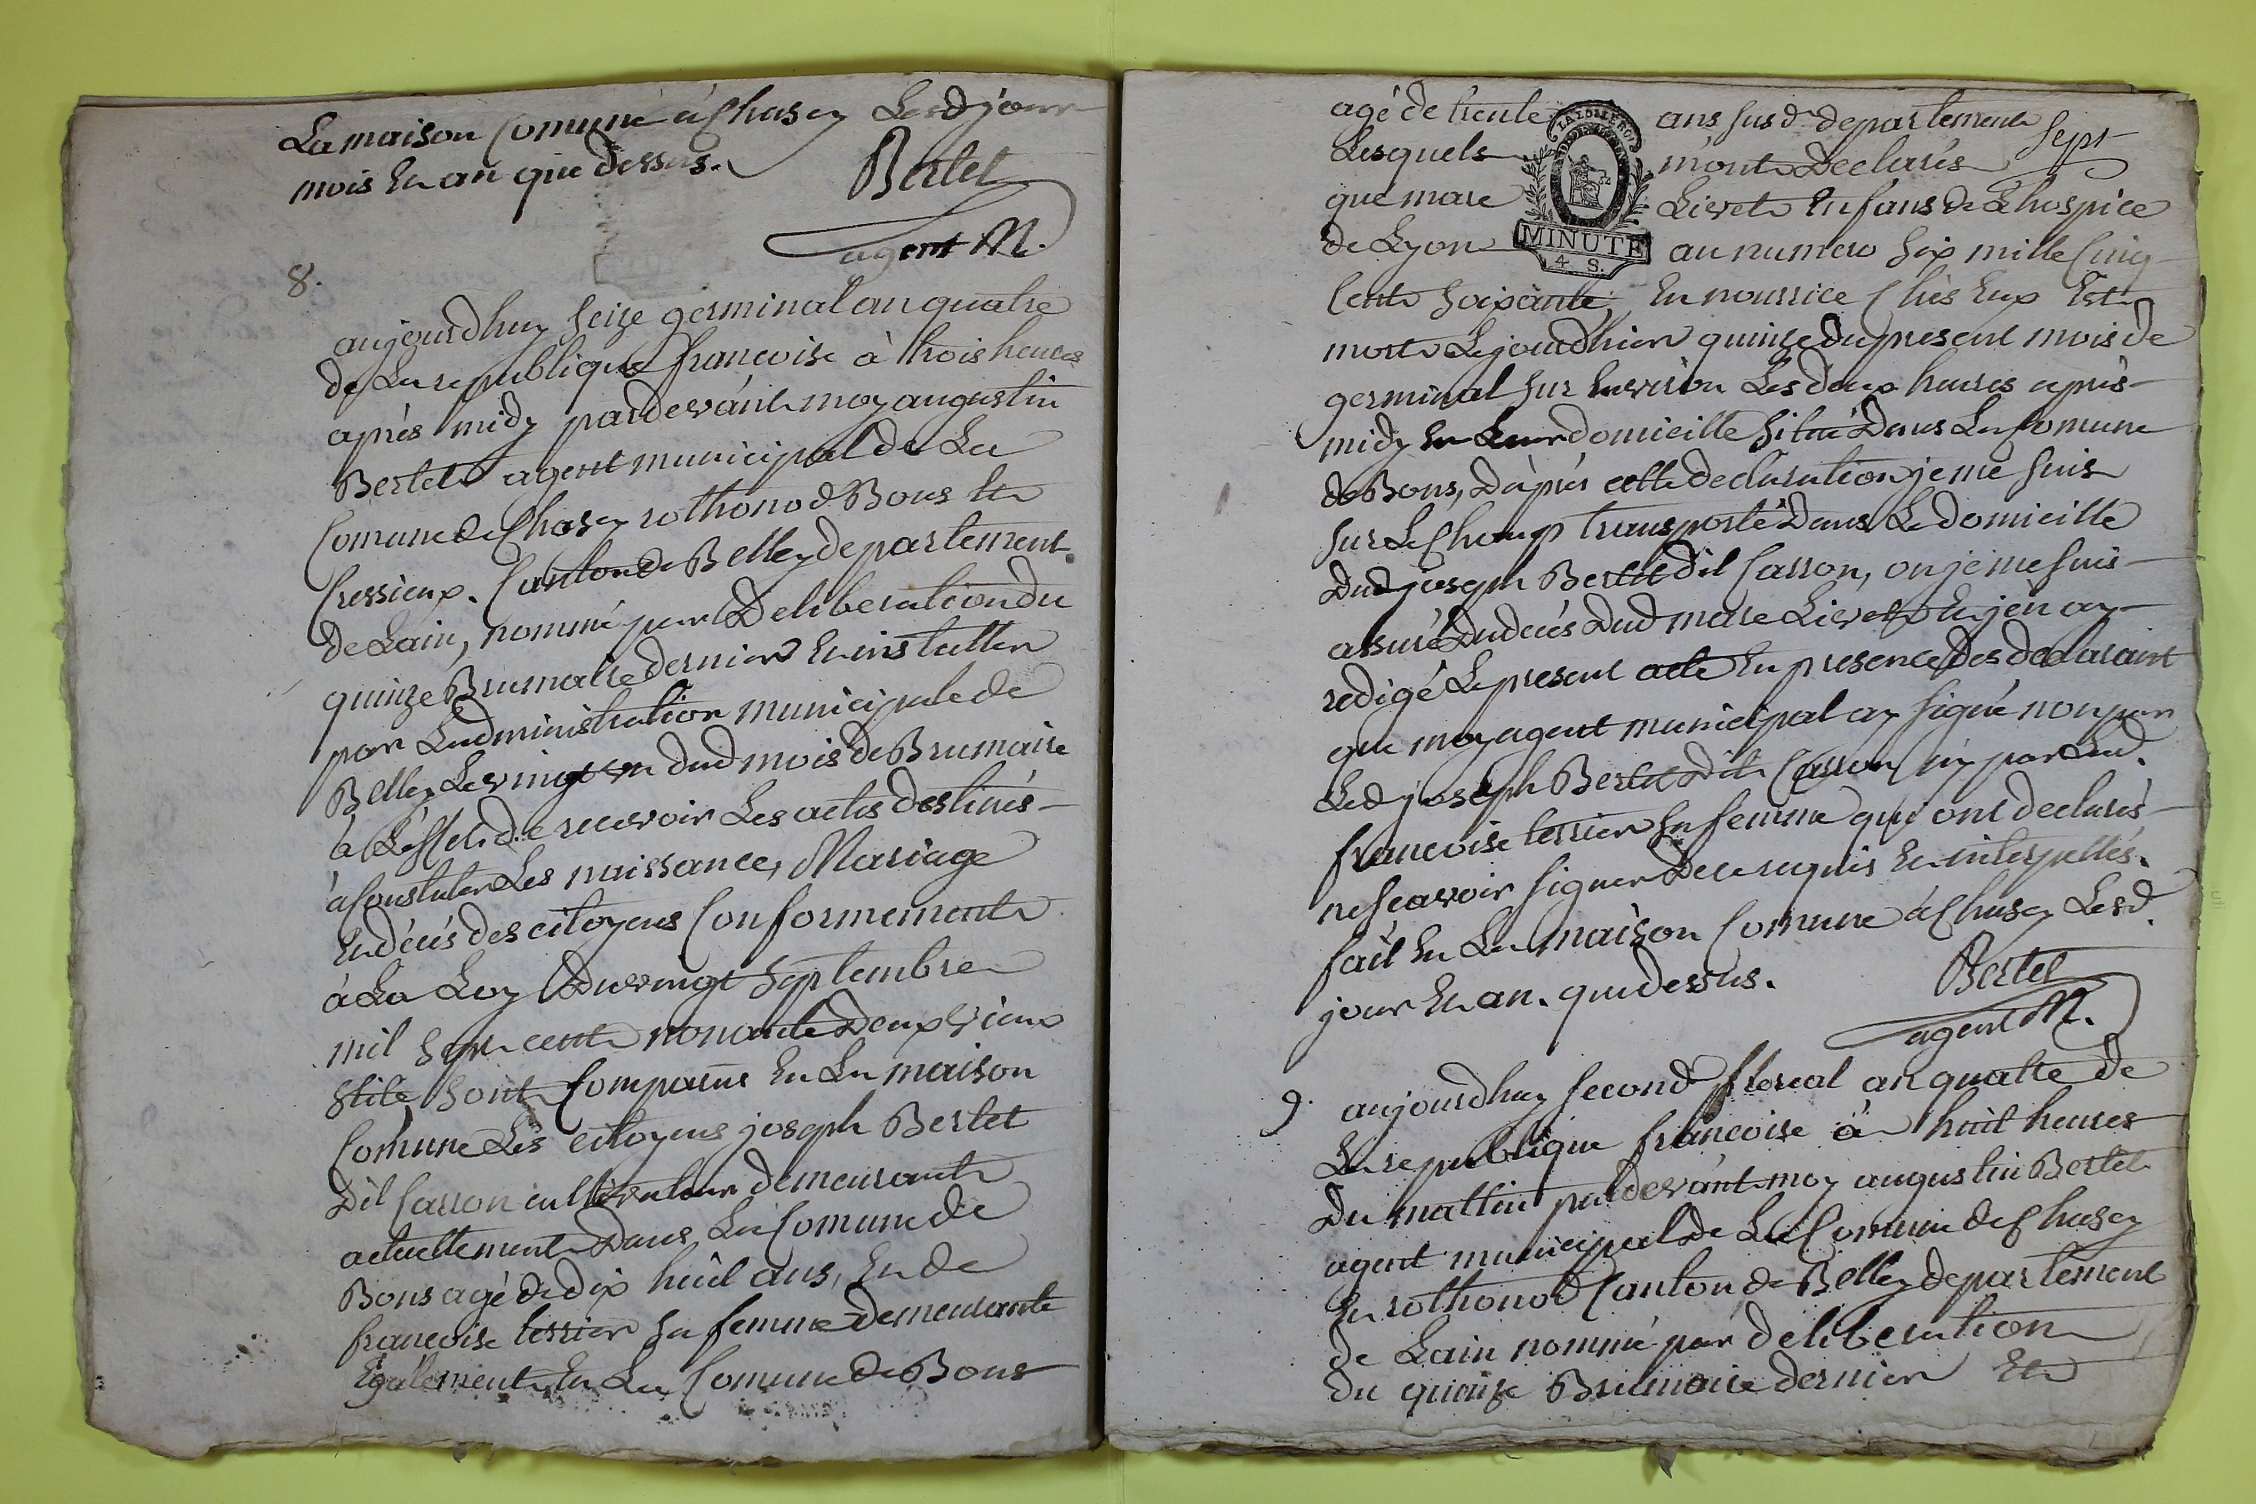 La maison Comune à Chasey Lesd jour
mois En an que dessus.
Bertet
agent M.
8.
aujourdhuy seize germinal an quatre
de La republique francoise à trois heures
après midy pardevant moy augustin
Bertet agent municipal de La
Comune de Chasey rothonod Bons Et
Cressieux. Canton de Belley departement
de Lain, nommé par Deliberation du
quinze Brumaire dernier En installer
par Ladministration municipale de
Belley Le vingt un dud mois de Brumaire
à Leffet de recevoir Les actes destinés
à Constater Les naissance, Mariage
En décés des citoyens Conformement
à La Loy Du vingt septembre
mil sept cent nonante Deux vieux
stile sont Comparus En La maison
Comune Les citoyens joseph Bertet
Dit Carron cultivateur demeurant
actuellement Dans La Comune de
Bons agé de dix huit ans, En de
francoise terrier sa femme Demeurante
Egalement En La Comune de Bons
agé de trente ans susd departement
sept
Lesquels m'ont Déclarés
que marc Livet Enfans de L'hospice
de Lyon au numero six mille Cinq
LA LOI LE ROI
MINUTE
4. S.
Cent soixante, En nourrice Chés Eux Est
mort Le jourdhier quinze du present mois de
germinal sur Environ Les deux heures après
midy En Leur domicille situé Dans La Comune
de Bons, D'après cette declaration je me suis
sur Le Champ transporté Dans Le domicille
Dud joseph Bertet dit Carron, ou je me suis
assuré Du décés Dud marc Livet En jen ay
redigé Le present acte En presence des declarant
que moy agent municipal ay signé non par
Led joseph Bertet Dit Carron ny par Lad.
francoise terrier sa femme qui ont declarés
ne scavoir signer De ce requis En interpellés.
fait En La maison Comune à Chasey Lesd.
jour En an. que dessus.
Bertet
agent M.
9. aujourdhuy second floreal an quatre de
La republique francoise à huit heures
Du mattin pardevant moy augustin Bertet
agent municipal de La Comune de Chasey
En rothonod Canton de Belley departement
de Lain nommé par deliberation
du quinze Brumaire dernier Et